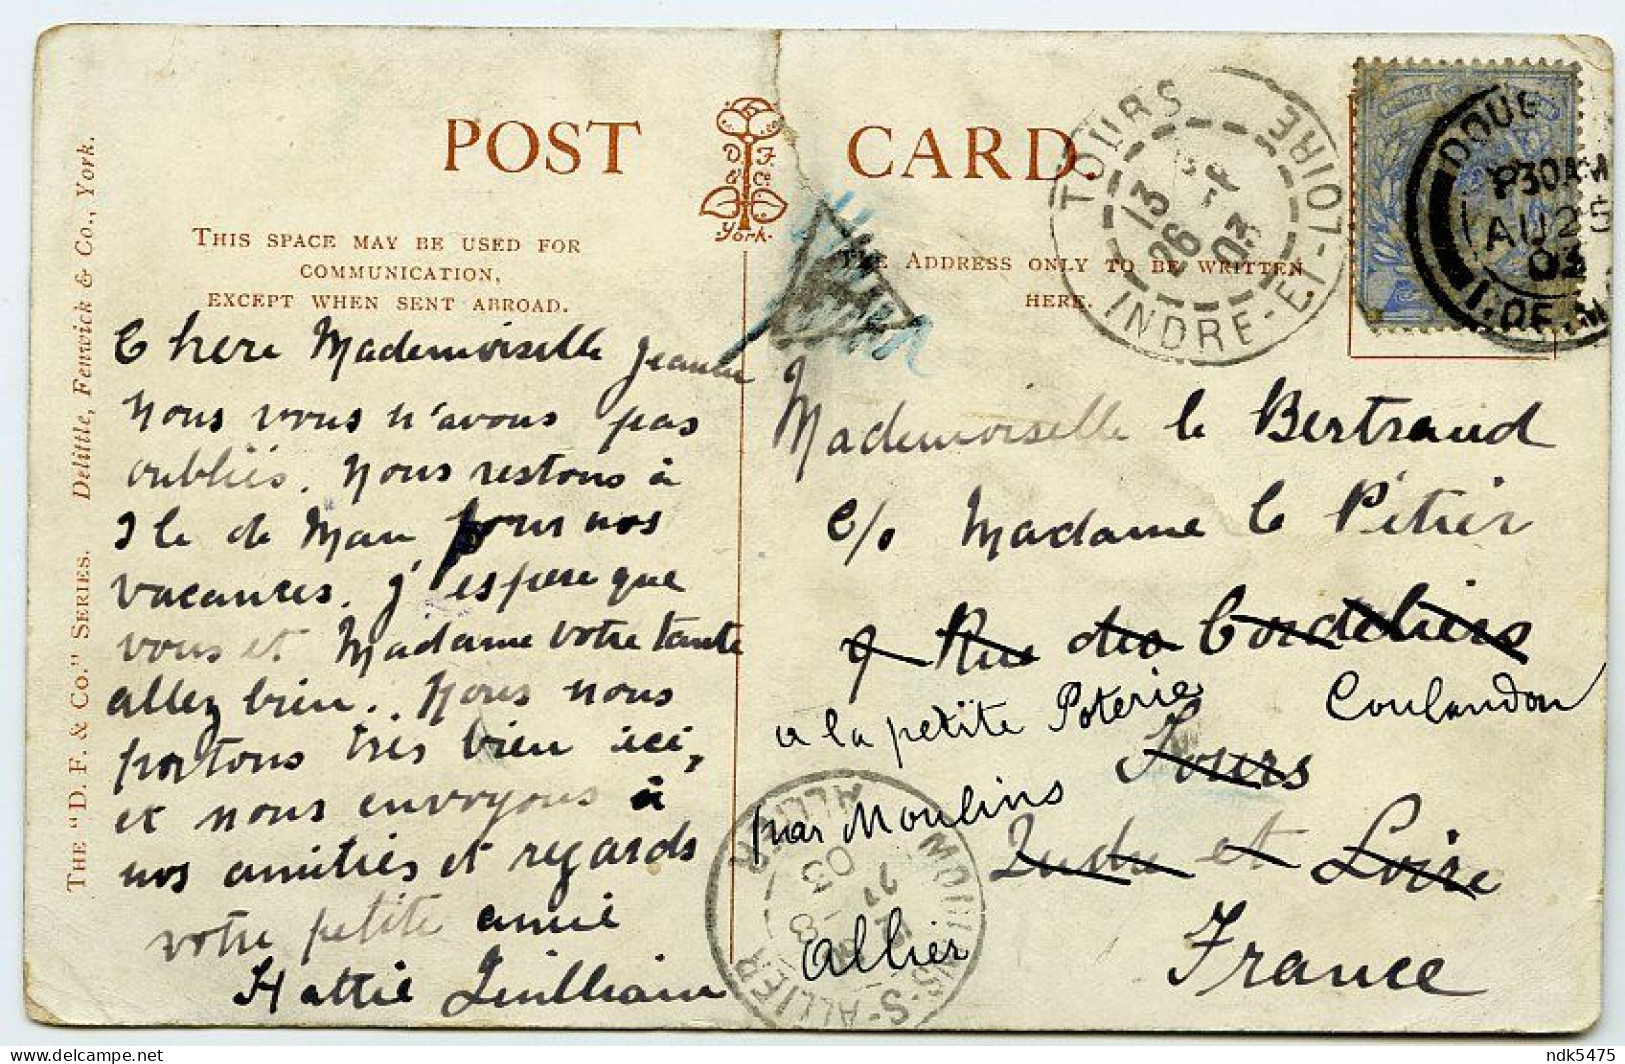 THE "D. F. & CO." SERIES. Delittle, Fenwick & Co., York.
POST CARD.
D F
& C
York.
THIS SPACE MAY BE USED FOR
COMMUNICATION,
EXCEPT WHEN SENT ABROAD.
Chere Mademoiselle Jeanne
Nous vous n'avons pas
oubliés. Nous restons à
Ile de Man pour nos
vacances. J'espere que
vous et Madame votre tante
allez bien. Nous nous
portons très bien ici,
et nous envoyons à
nos amitiés et regards
votre petite amie
Hattie
THE ADDRESS ONLY TO BE WRITTEN
HERE.
TOURS
INDRE-ET-LOIRE
13
26 03
DOUG
830AM
AU 25
03
I. OF M
Mademoiselle le Bertraud
c/o Madame le Pétrir
9 Rue des Cordeliers
a la petite Poterie Coulandon
Tours
par Moulins
Indre et Loire
Allier
France
MOULINS-S-ALLIER
ALLIER
27
03
delcampe.net
ndk5475